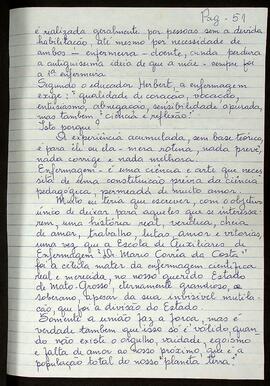 Pag - 51
é realizada geralmente por pessoas sem a devida
habilitação, até mesmo por necessidade de
ambos - enfermeira - doente, ainda perdura
a antiquíssima ideia de que a mãe - sempre foi
a 1ª enfermeira.
Segundo o educador Herbert, a enfermagem
exige: "qualidade de coração, vocação,
entusiasmo, abnegação, sensibilidade apurada,
mas também, "ciência e reflexão".
Isto porque:
A experiência acumulada, sem base teórica,
é para ele ou ela - mera rotina, nada prevê,
nada corrige e nada melhora.
Enfermagem - é uma ciência e arte que neces-
sita de uma constituição prévia da ciência
pedagógica, permeada de muito amor.
Muito eu teria que escrever, com o objetivo
único de deixar para aqueles que se interessa-
rem, uma história real, verídica, cheia
de amor, trabalho, lutas, amor e vitórias,
uma vez que a Escola de Auxiliares de
Enfermagem "Dr Mario Corrêa da Costa"
foi a célula mater da enfermagem científica,
real e merecida, no nosso querido Estado
de Mato-Grosso, eternamente grandioso, e
soberano, apesar da sua invisível mutila-
ção, que foi a divisão do Estado.
Somente a união faz a força, mas é
verdade também que isso só é válido, quan-
do não existe o orgulho, vaidade, egoísmo
e falta de amor ao nosso próximo que é a
população total do nosso planeta terra.